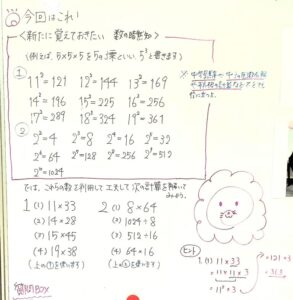 今回はこれ!
<新たに覚えておきたい 数の暗記>
(例えば、5×5×5を5の3乗といい、5³と書きます)
①
11²=121 12²=144 13²=169
14²=196 15²=225 16²=256
17²=289 18²=324 19²=361
②
2²=4 2³=8 2⁴=16 2⁵=32
2⁶=64 2⁷=128 2⁸=256 2⁹=512
2¹⁰=1024
では、これらの数を利用して工夫して次の計算を
みよう。
1 (1) 11×33
(2) 14×28
(3) 15×45
(4) 19×38
(上の①を使います)
2 (1) 8×64
(2) 1024÷8
(3) 512÷16
(4) 64×16
(上の②を使います)
ヒント
1.(1) 11×33
=11×11×3
=11²×3
=121×3
BOX